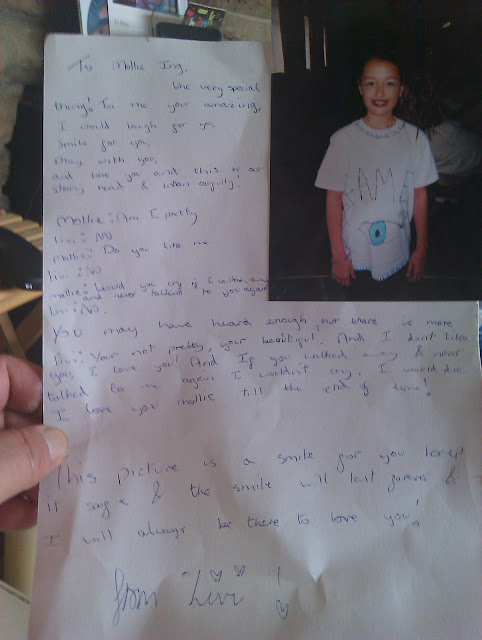 To Mollie Ing,
the very special
things! To me your amazing,
I would laugh for you,
Smile for you,
Play with you,
and love you and this is our
story, read & listen carfully!
Mollie: Am I pretty
livi: NO
mollie: Do you like me
livi: NO
mollie: Would you cry if I walked away
and never talked to you again
livi: NO.
You may have heard enough, but there is more
livi: Your not pretty, your beautiful. And I don't like
you, I love you! And If you walked away & never
talked to me again I wouldn't cry, I would die.
I love you mollie till the end of time!
This picture is a smile for you keep
it safe & the smile will last forever &
I will always be there to love you!
from Livi !
I AM A